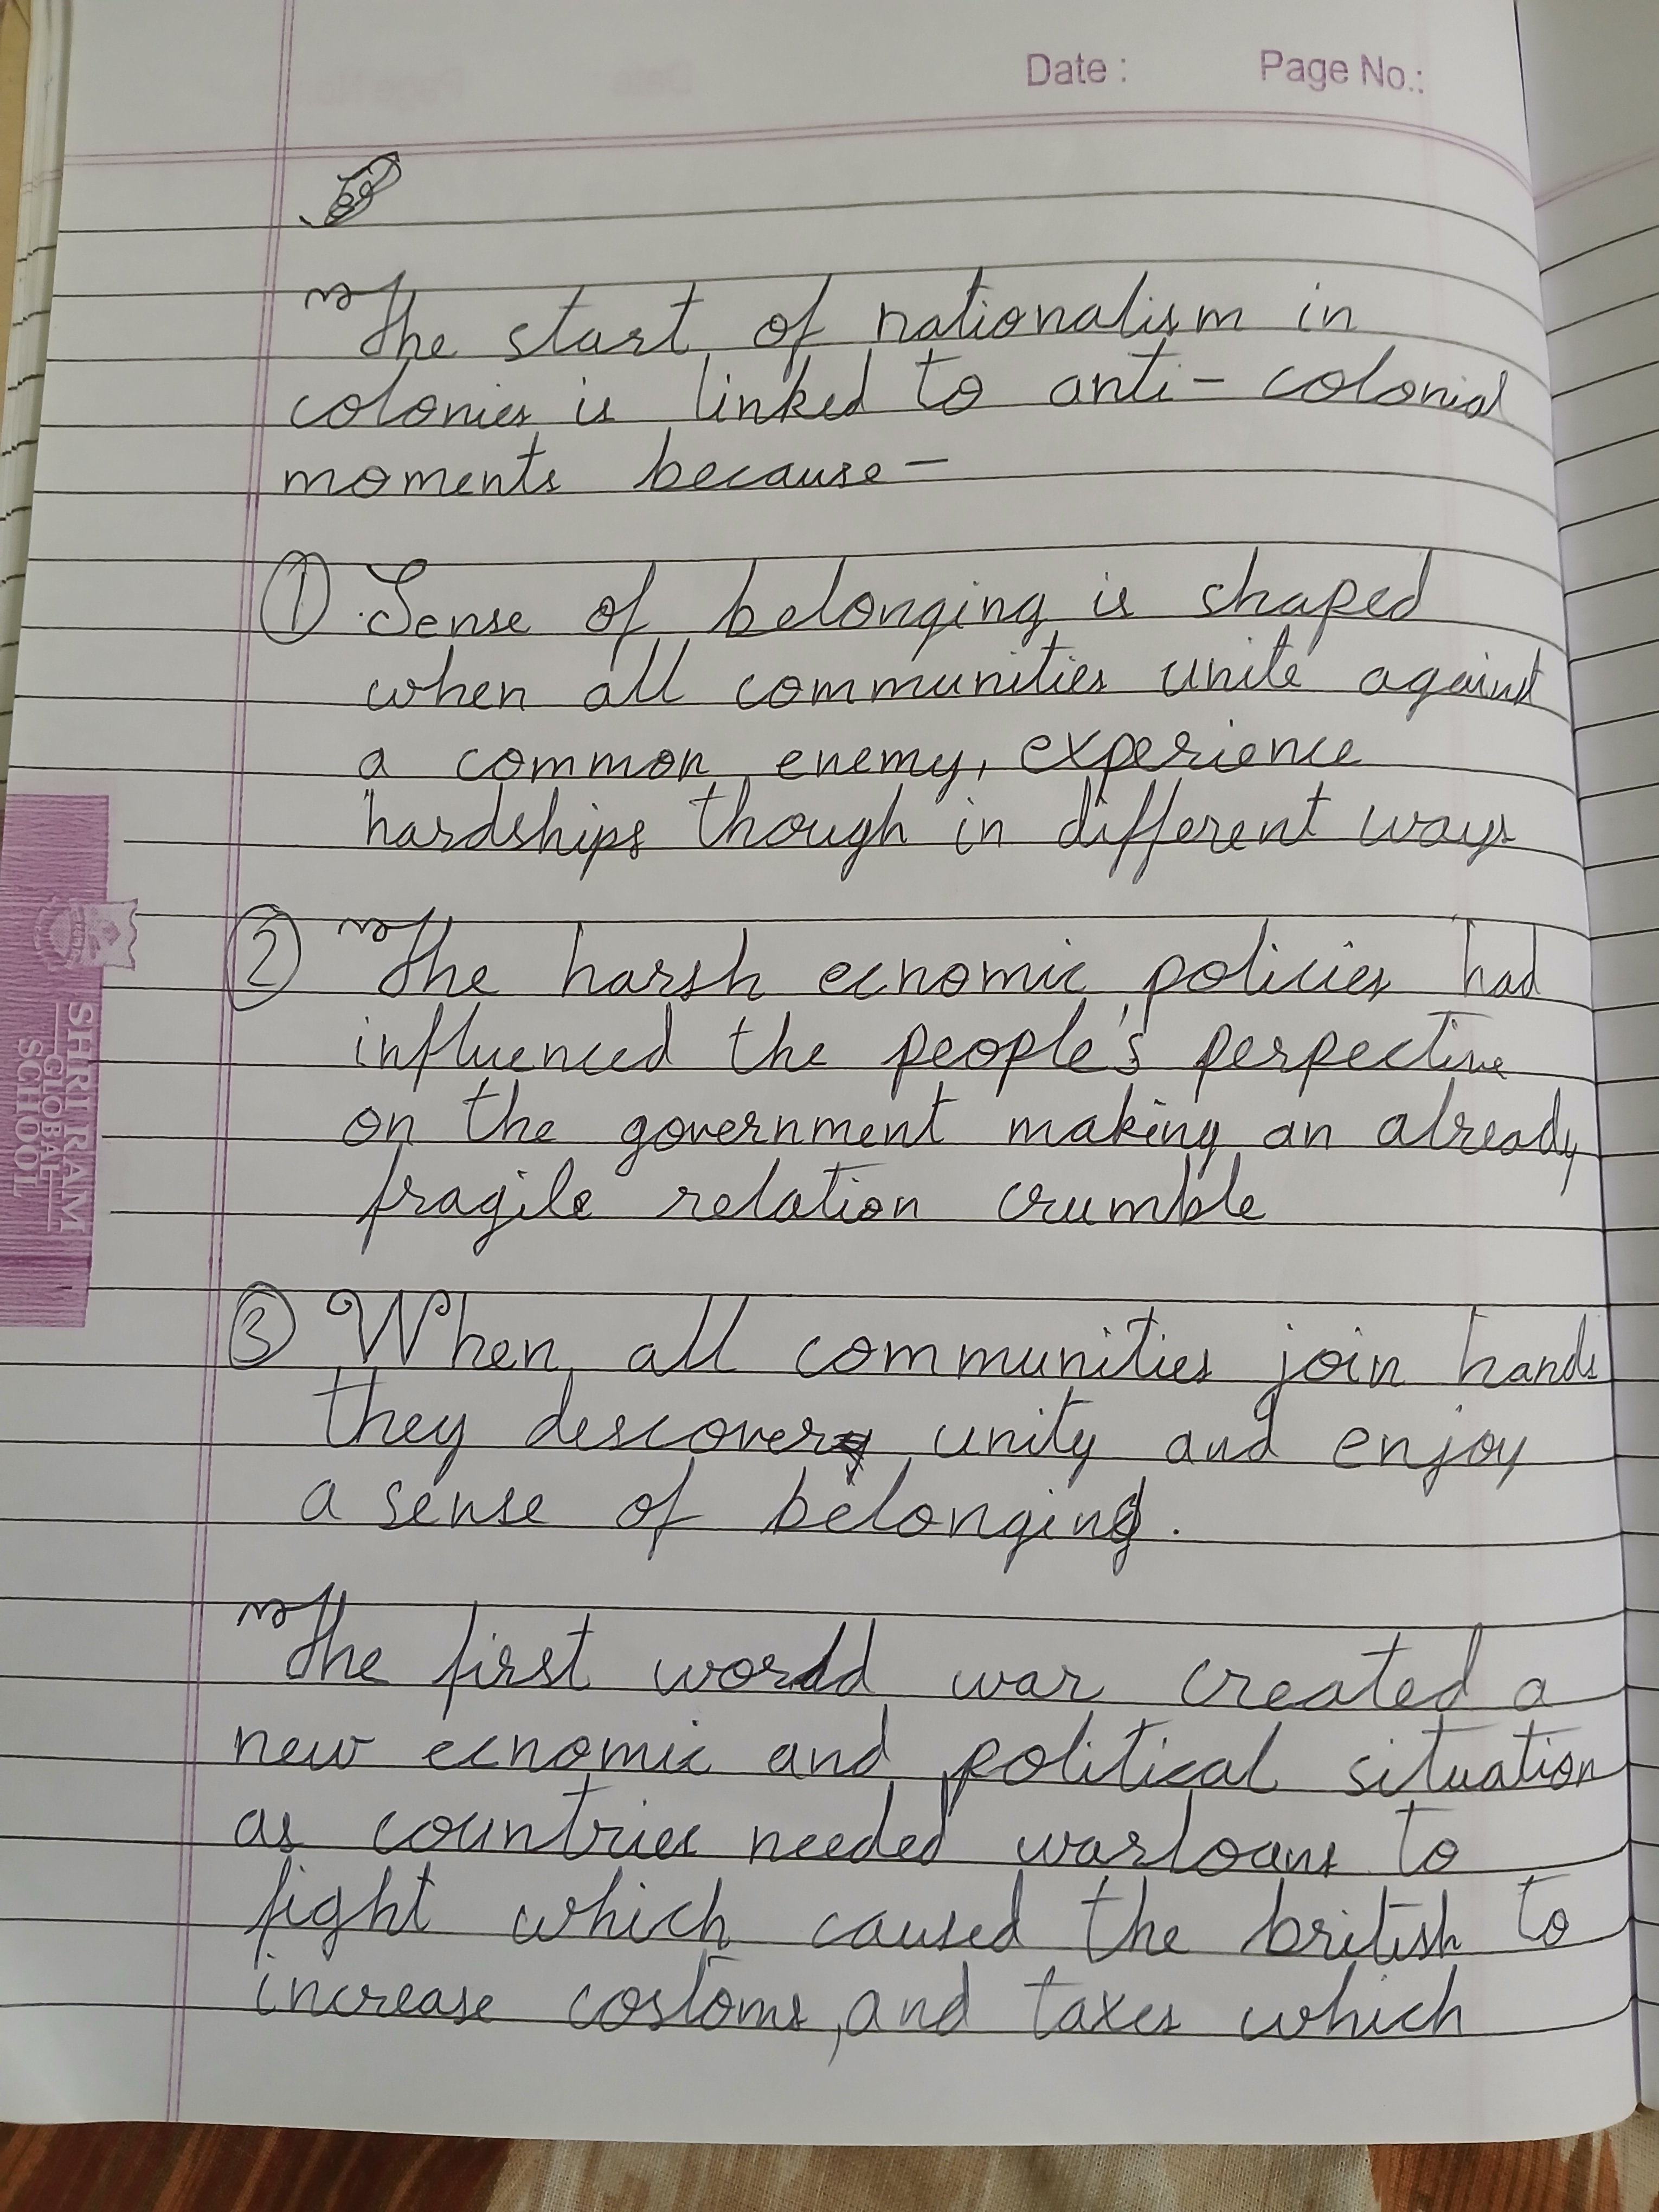 Date : Page No.:
The start of nationalism in
colonies is linked to anti - colonial
moments because -
① Sense of belonging is shaped
when all communities unite against
a common enemy, experience
hardships though in different ways
② The harsh ecnomic policies had
influenced the people's perpective
on the government making an already
fragile relation crumble
③ When all communities join hands
they descover unity and enjoy
a sense of belonging.
The first world war created a
new ecnomic and political situation
as countries needed warloans to
fight which caused the british to
increase costoms, and taxes which
SHRI RAM
GLOBAL
SCHOOL